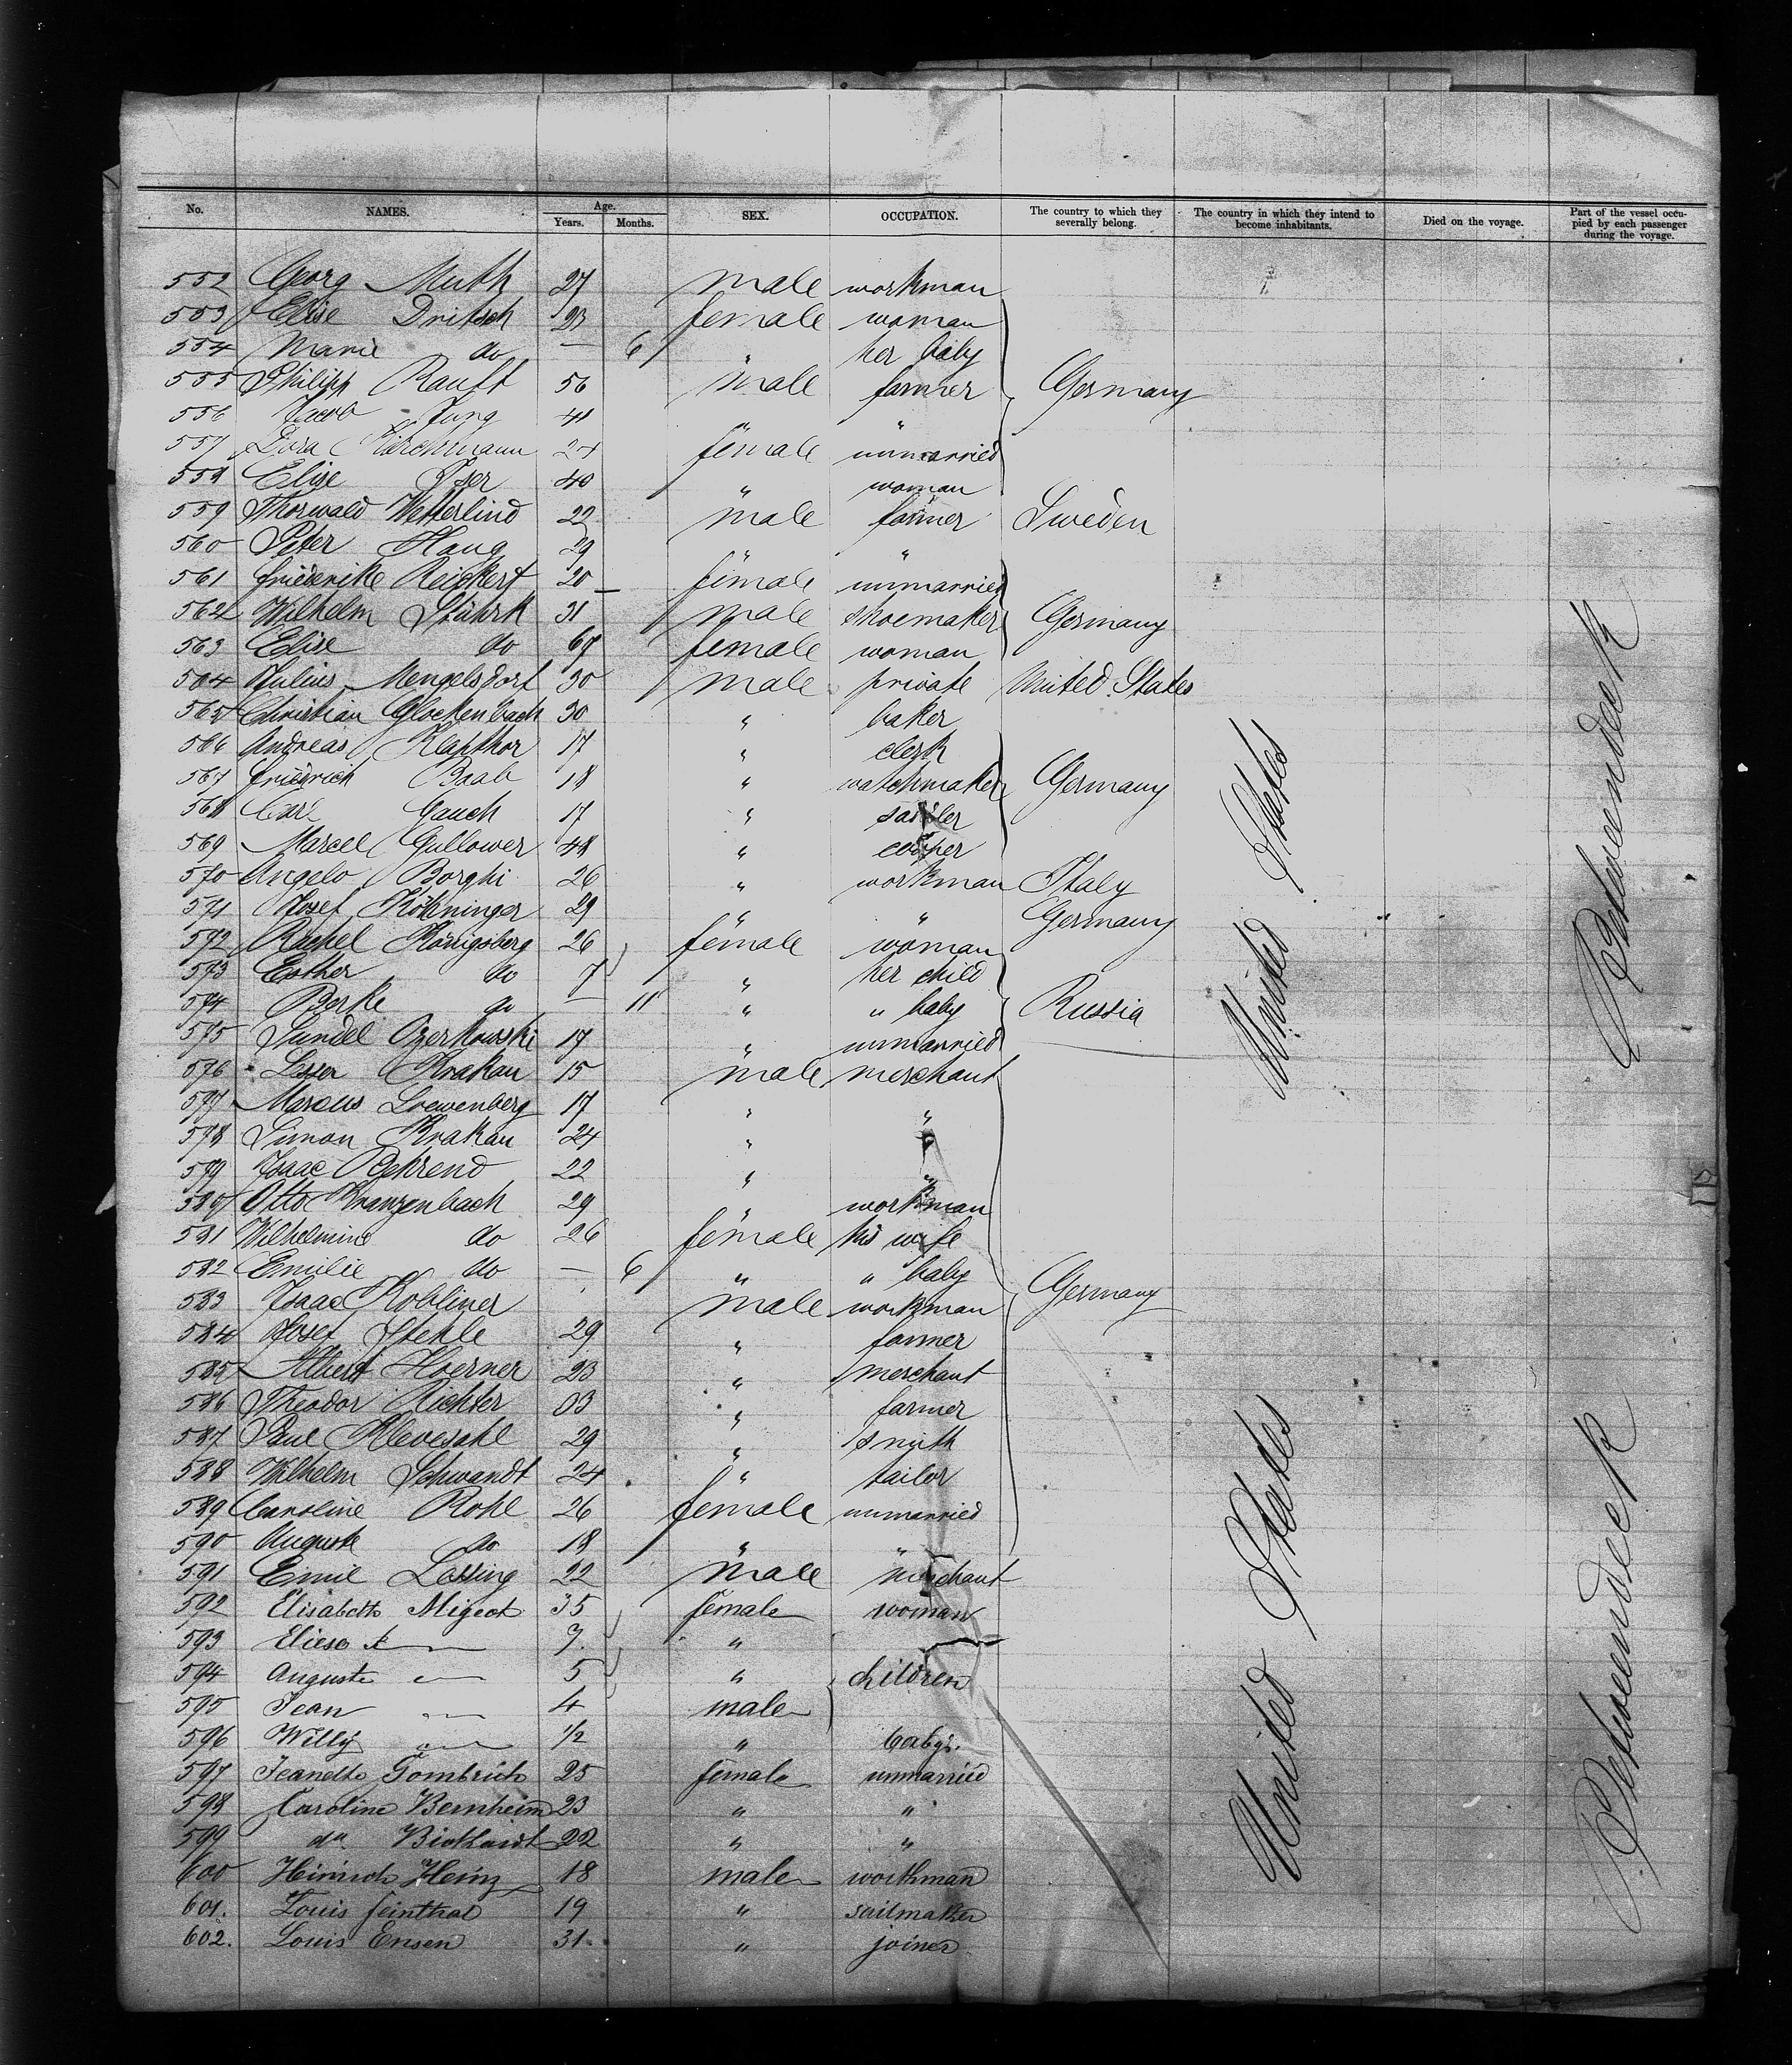 No. NAMES. Age. Years. Months. SEX. OCCUPATION. The country to which they severally belong. The country in which they intend to become inhabitants. Died on the voyage. Part of the vessel occupied by each passenger during the voyage.
552 Georg Muth 27 male workman
553 Elise Dritsch 23 female woman
554 Marie do — 6 " her baby
555 Philipp Rauft 56 male farmer Germany
556 Jacob Jung 41 "
557 Dora Kirchmann 24 female unmarried
558 Elise 40 " woman
559 Thorwald Wetterlind 22 male farmer Sweden
560 Peter Haug 29 "
561 Friederike Reickert 20 female unmarried
562 Wilhelm Stührk 31 male shoemaker Germany
563 Elise do 67 female woman
564 Julius Mengelsdorf 30 male private United States
565 Christian Glockenbach 30 " baker
566 Andreas Klapthor 17 " clerk
567 Friedrich Raab 18 " watchmaker Germany
568 Carl Gauch 17 " sadler
569 Marcel Gullower 48 " cooper
570 Angelo Borghi 26 " workman Italy
571 Josef Köhninger 29 " " Germany
572 Rachel Königsberg 26 female woman
573 Esther do 7 " her child
574 Berke do — 11 " " baby Russia
575 Sundel Ozerkowski 17 " unmarried
576 Lesser Krakau 15 male merchant
577 Marcus Loewenberg 17 " "
578 Simon Krakau 24 " "
579 Isaac Behrend 22 " "
580 Otto Kranzenbach 29 " workman
581 Wilhelmine do 26 female his wife
582 Emilie do — 6 " " baby
583 Isaac Kobliner male workman Germany
584 Josef Stehle 29 " farmer
585 Albert Hoerner 23 " merchant
586 Theodor Richter 03 " farmer
587 Paul Klevesahl 29 " smith
588 Wilhelm Schwandt 24 " tailor
589 Caroline Rohl 26 female unmarried
590 Auguste do 18 " "
591 Emil Lessing 22 male merchant
592 Elisabeth Migeot 35 female woman
593 Eliese — 7. "
594 Auguste — 5 " children
595 Jean — 4 male
596 Willy — 1/2 " baby.
597 Jeanette Gombrich 25 female unmarried
598 Caroline Bernheim 23 " "
599 do Bickhardt 22 " "
600 Heinrich Heinz 18 male workman
601. Louis Feinthal 19 " sailmaker
602. Louis Ensen 31 " joiner
United States
Betweendeck
United States
Betweendeck